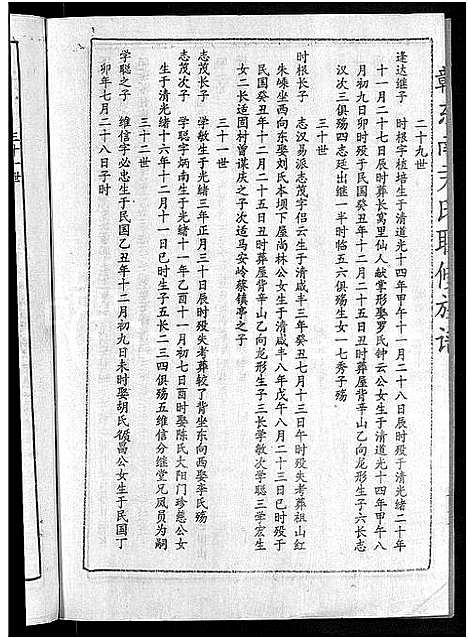 二十九世
逢达继子　时根字植培生于清道光十四年甲午十一月二十八日辰时殁于清光绪二十年
十一月二十七日辰时葬长窝里仙人献掌形娶罗氏钟云公女生于清道光十四年甲午八
月初九日卯时殁于民国癸丑年十二月二十五日丑时葬屋背辛山乙向龙形生子六长志
汉次三俱殇四志廷出继一半时临五六俱殇生女一七秀子殇
三十世
时根长子　志汉易派志茂字侣云生于清咸丰三年癸丑七月十三日午时殁失考葬祖山红
朱嵊坐西向东娶刘氏本坝下屋尚林公女生于清咸丰八年戊午八月二十三日时殁于
民国癸丑年十二月二十五日丑时葬屋背辛山乙向龙形生子三长学敏次学聪三学宏生
女二长适固村曾谋庆之子次适马安岭蔡镇亭之子
三十一世
志茂长子　学敏生于光绪三年正月三十日辰时殁失考葬较了背坐东向西娶李氏殇
志茂次子　学聪字炳南生于光绪十一年乙酉十一月初七日酉时娶陈氏大阳门珍慈公女
生于清光绪十六年十二月十一日巳时生子五长二三四俱殇五维信分继堂兄凤员为嗣
三十二世
学聪之子　维信字必忠生于民国乙丑年十二月初九日未时娶胡氏硕昌公女生于民国丁
卯年七月二十八日子时
三十一世